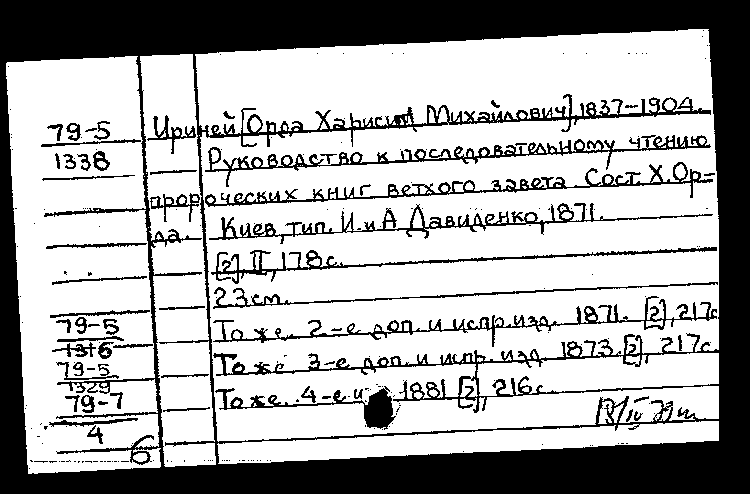 79-5 Ириней [Орда Харисим Михайлович], 1837-1904.
1338 Руководство к последовательному чтению
пророческих книг ветхого завета. Сост. Х. Ор=
да. Киев, тип. И. и А. Давиденко, 1871.
[2], II, 178 с.
23 см.
79-5 То же. 2-е доп. и испр. изд. 1871. [2], 217 с
1316
79-5 То же 3-е доп. и испр. изд. 1873. [2], 217 с.
1329
79-7 То же. 4-е и 1881 [2], 216 с.
4
6